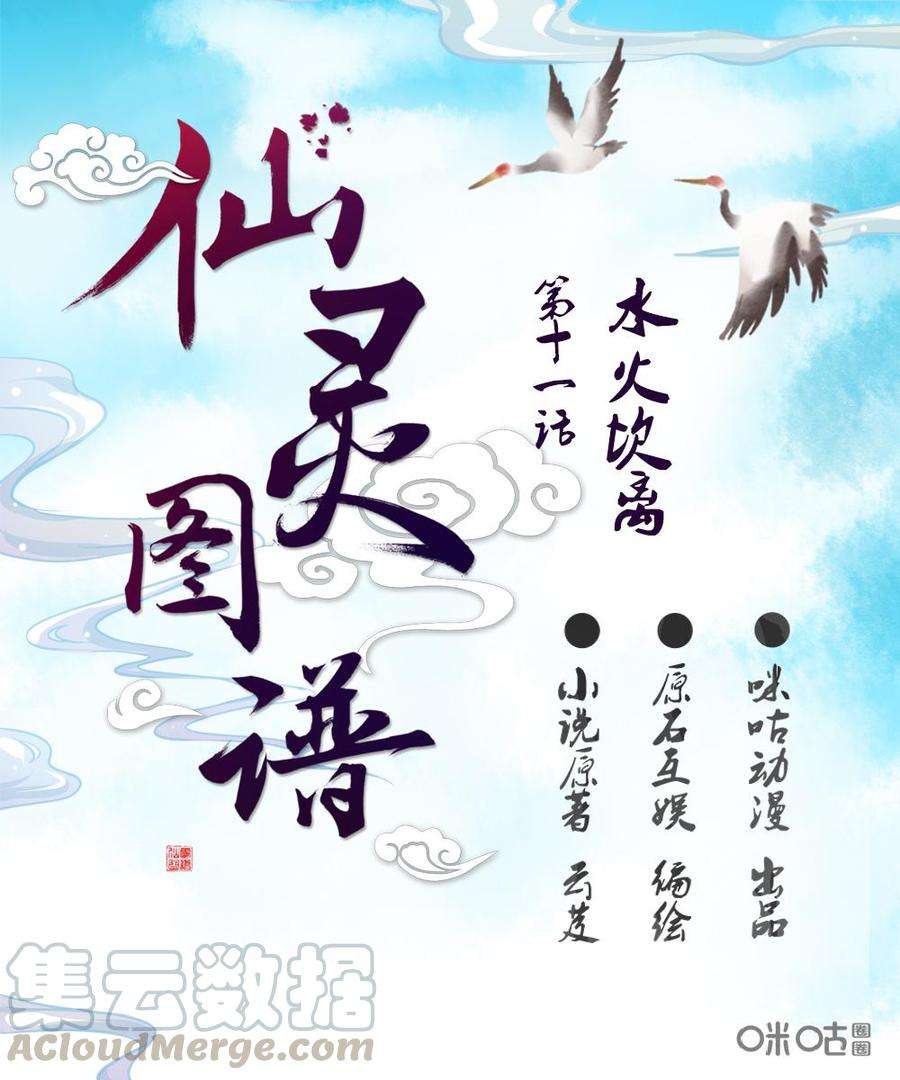 仙灵图谱
水火坎离
第十一话
咪咕动漫 出品
原石互娱 编绘
小说原著 云芨
集云数据
ACloudMerge.com
咪咕圈圈